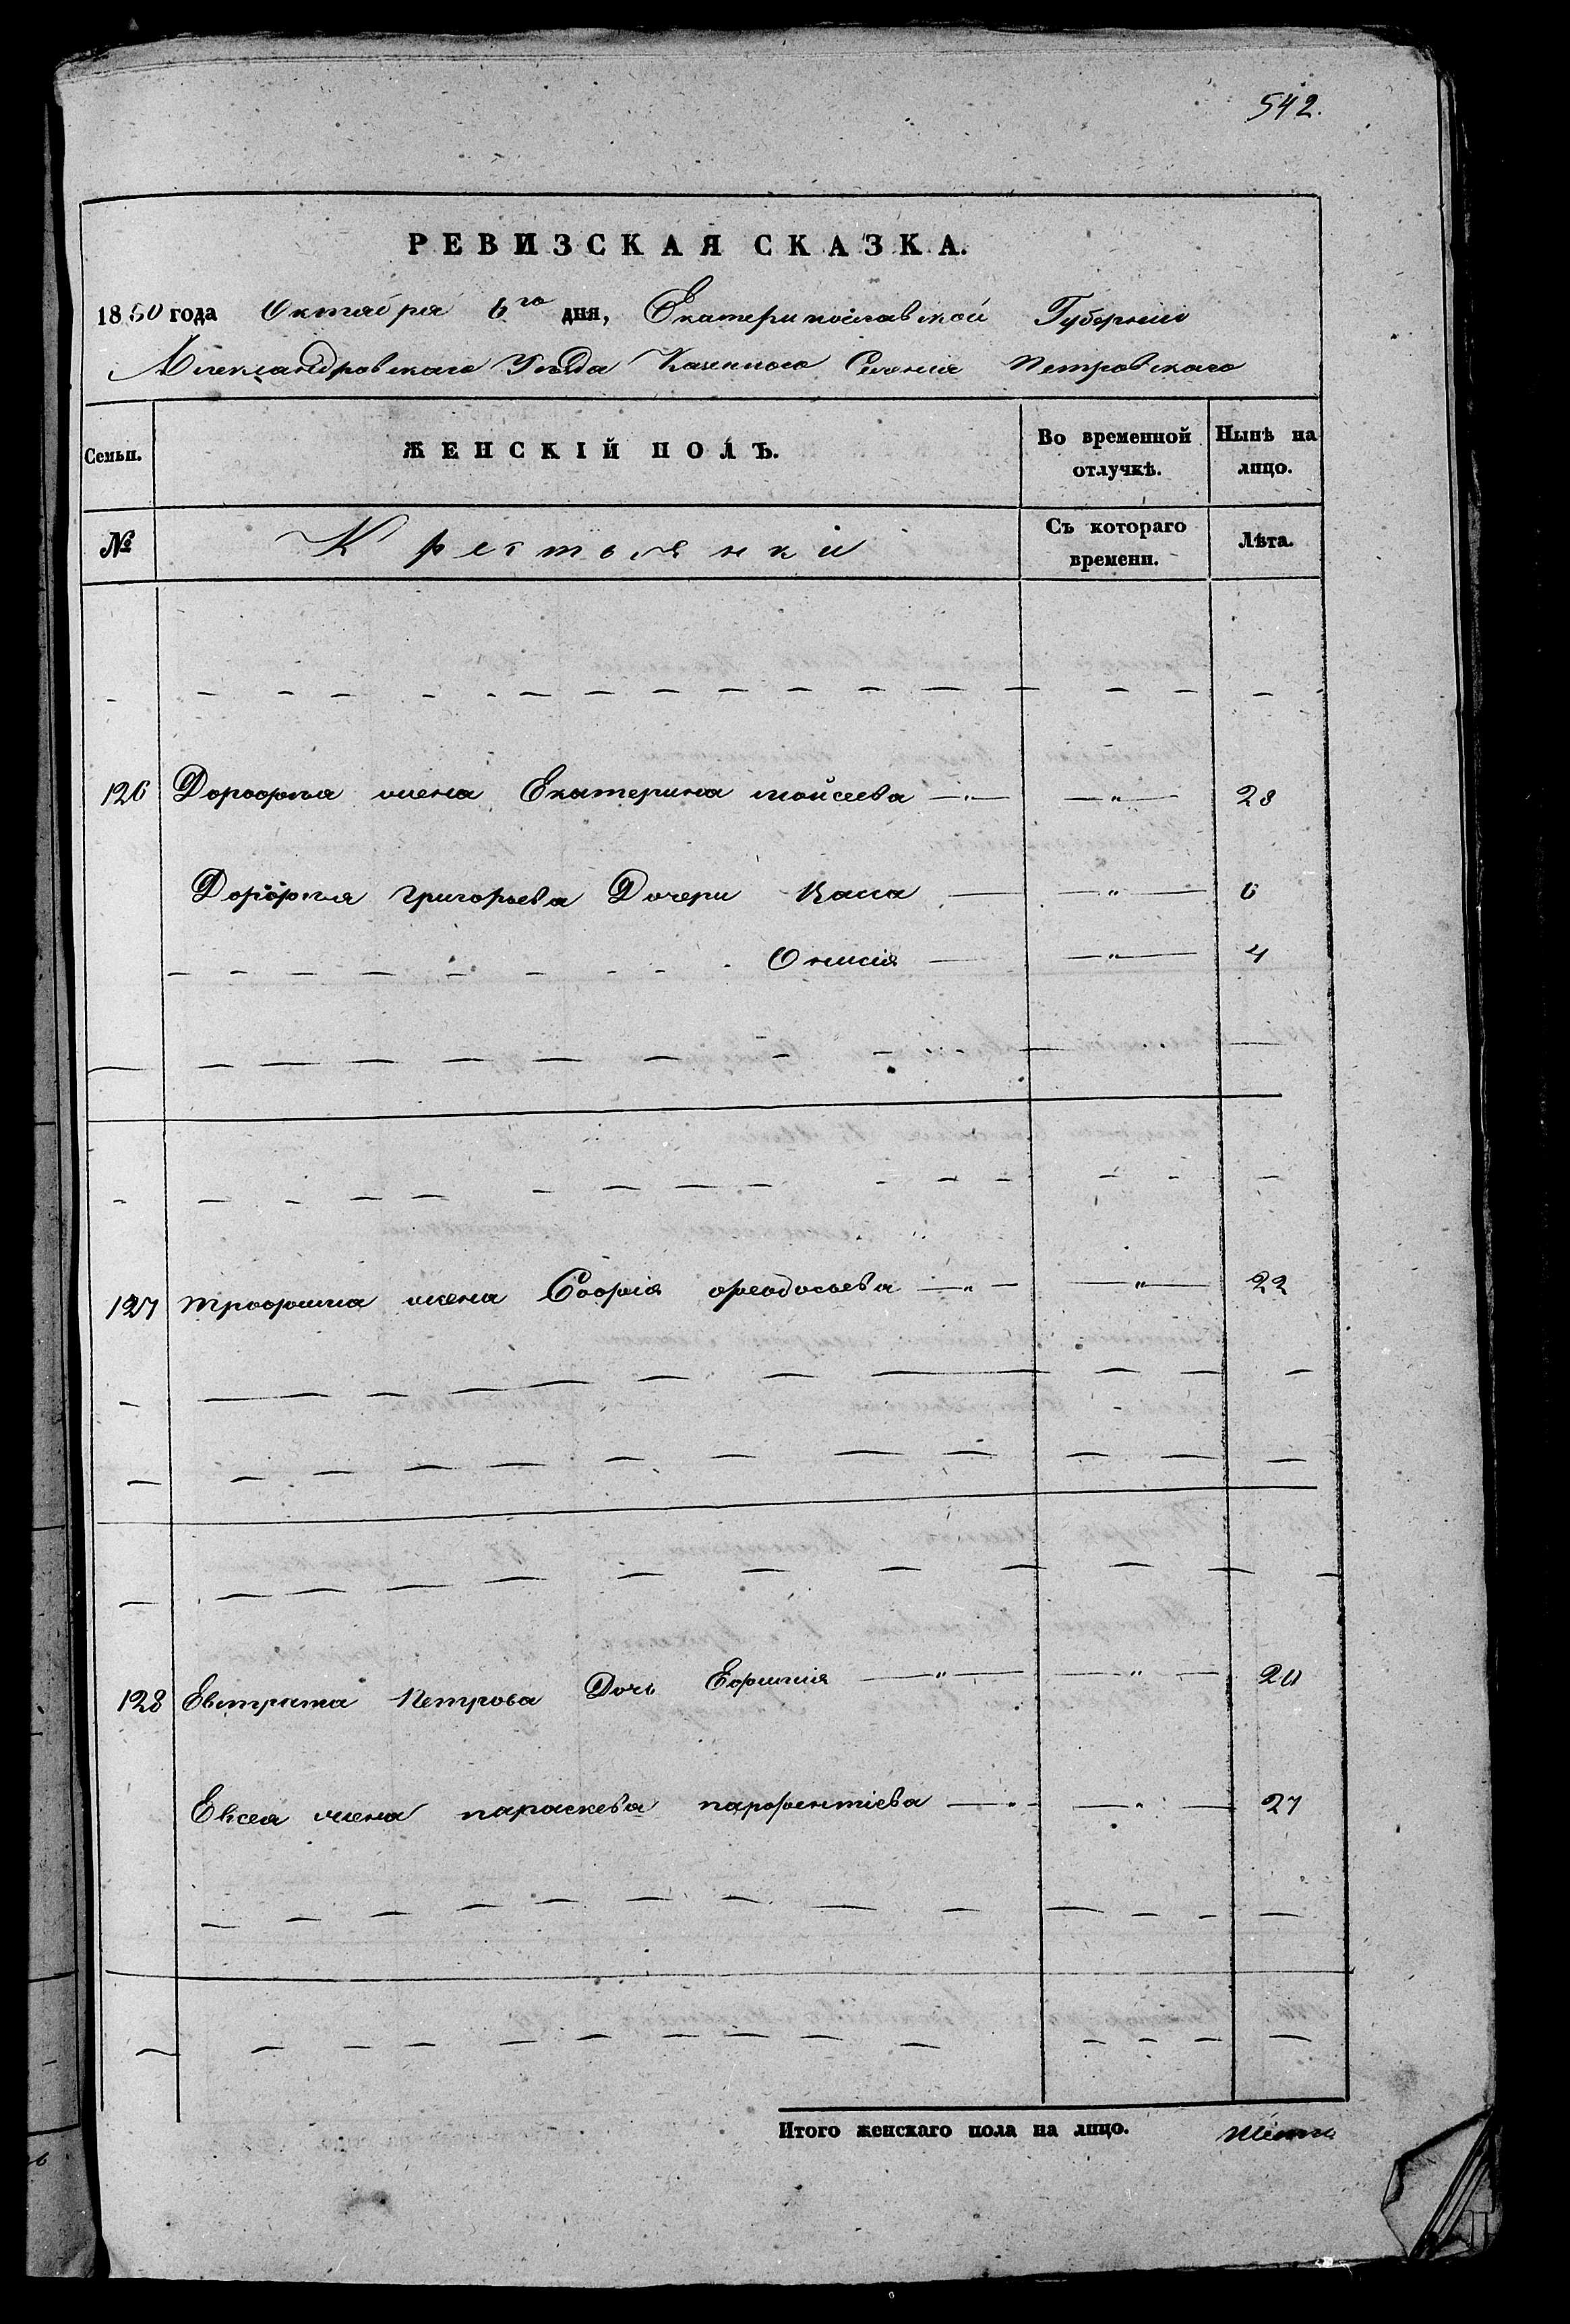 542.
РЕВИЗСКАЯ СКАЗКА.
1850 года Октября 6го дня, Екатеринославской Губернии
Александровскаго Уезда Казенного Селения Петровскаго
Семьи.
ЖЕНСКІЙ ПОЛЪ.
Во временной отлучкѣ.
Нынѣ на лицо.
№
Крестьянки
Съ котораго времени.
Лѣта.
126 Дорофея жена Екатерина моисеева — " — — " — 28
Дорофея григорьева Дочери — " — 6
Онисія — " — 4
127 трофима жена Софія феодосьева — " — — " — 22
128 Евтрата Петрова Дочь Ефимія — " — — " — 20
Евсея жена параскева парфентіева — " — — " — 27
Итого женскаго пола на лицо.